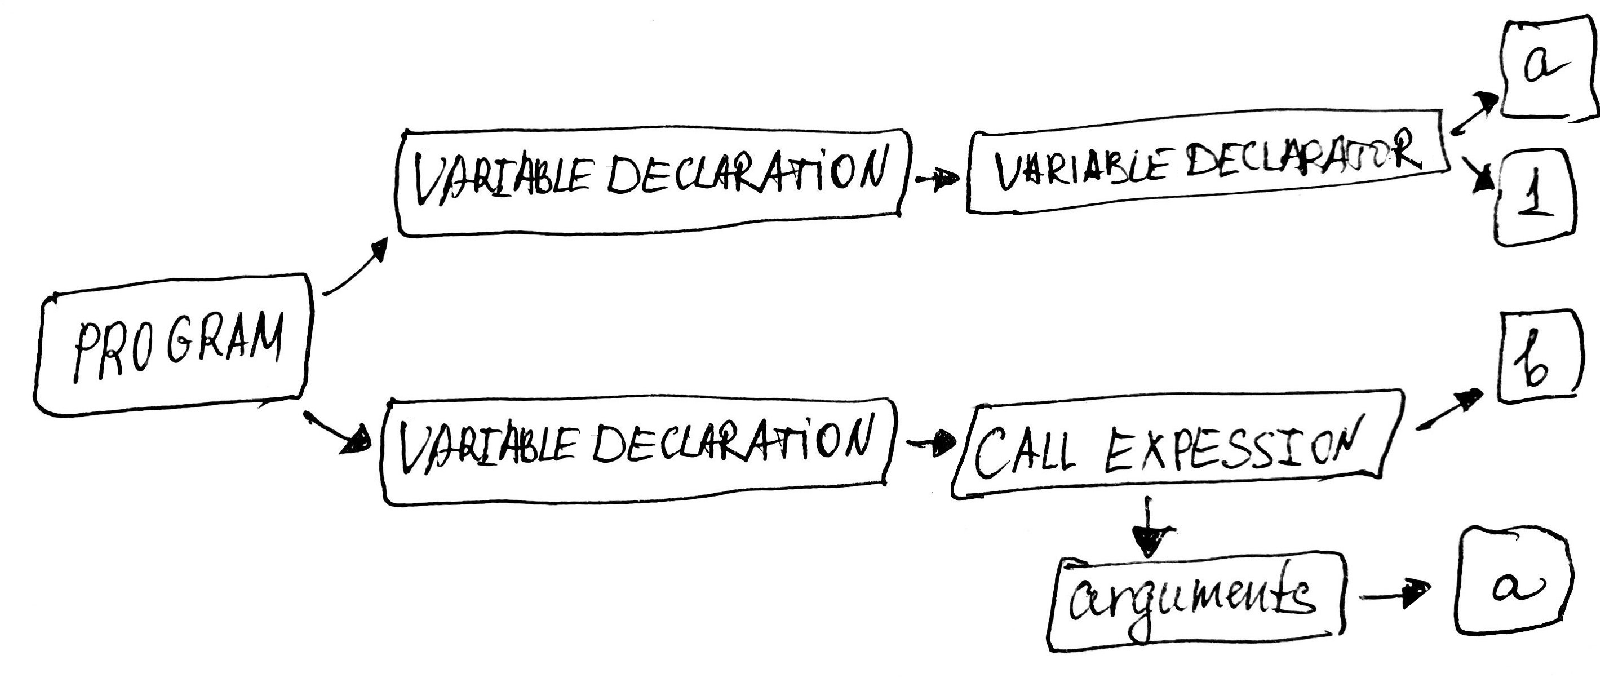 a
VARIABLE DECLARATION
VARIABLE DECLARATOR
1
PROGRAM
b
VARIABLE DECLARATION
CALL EXPESSION
arguments
a